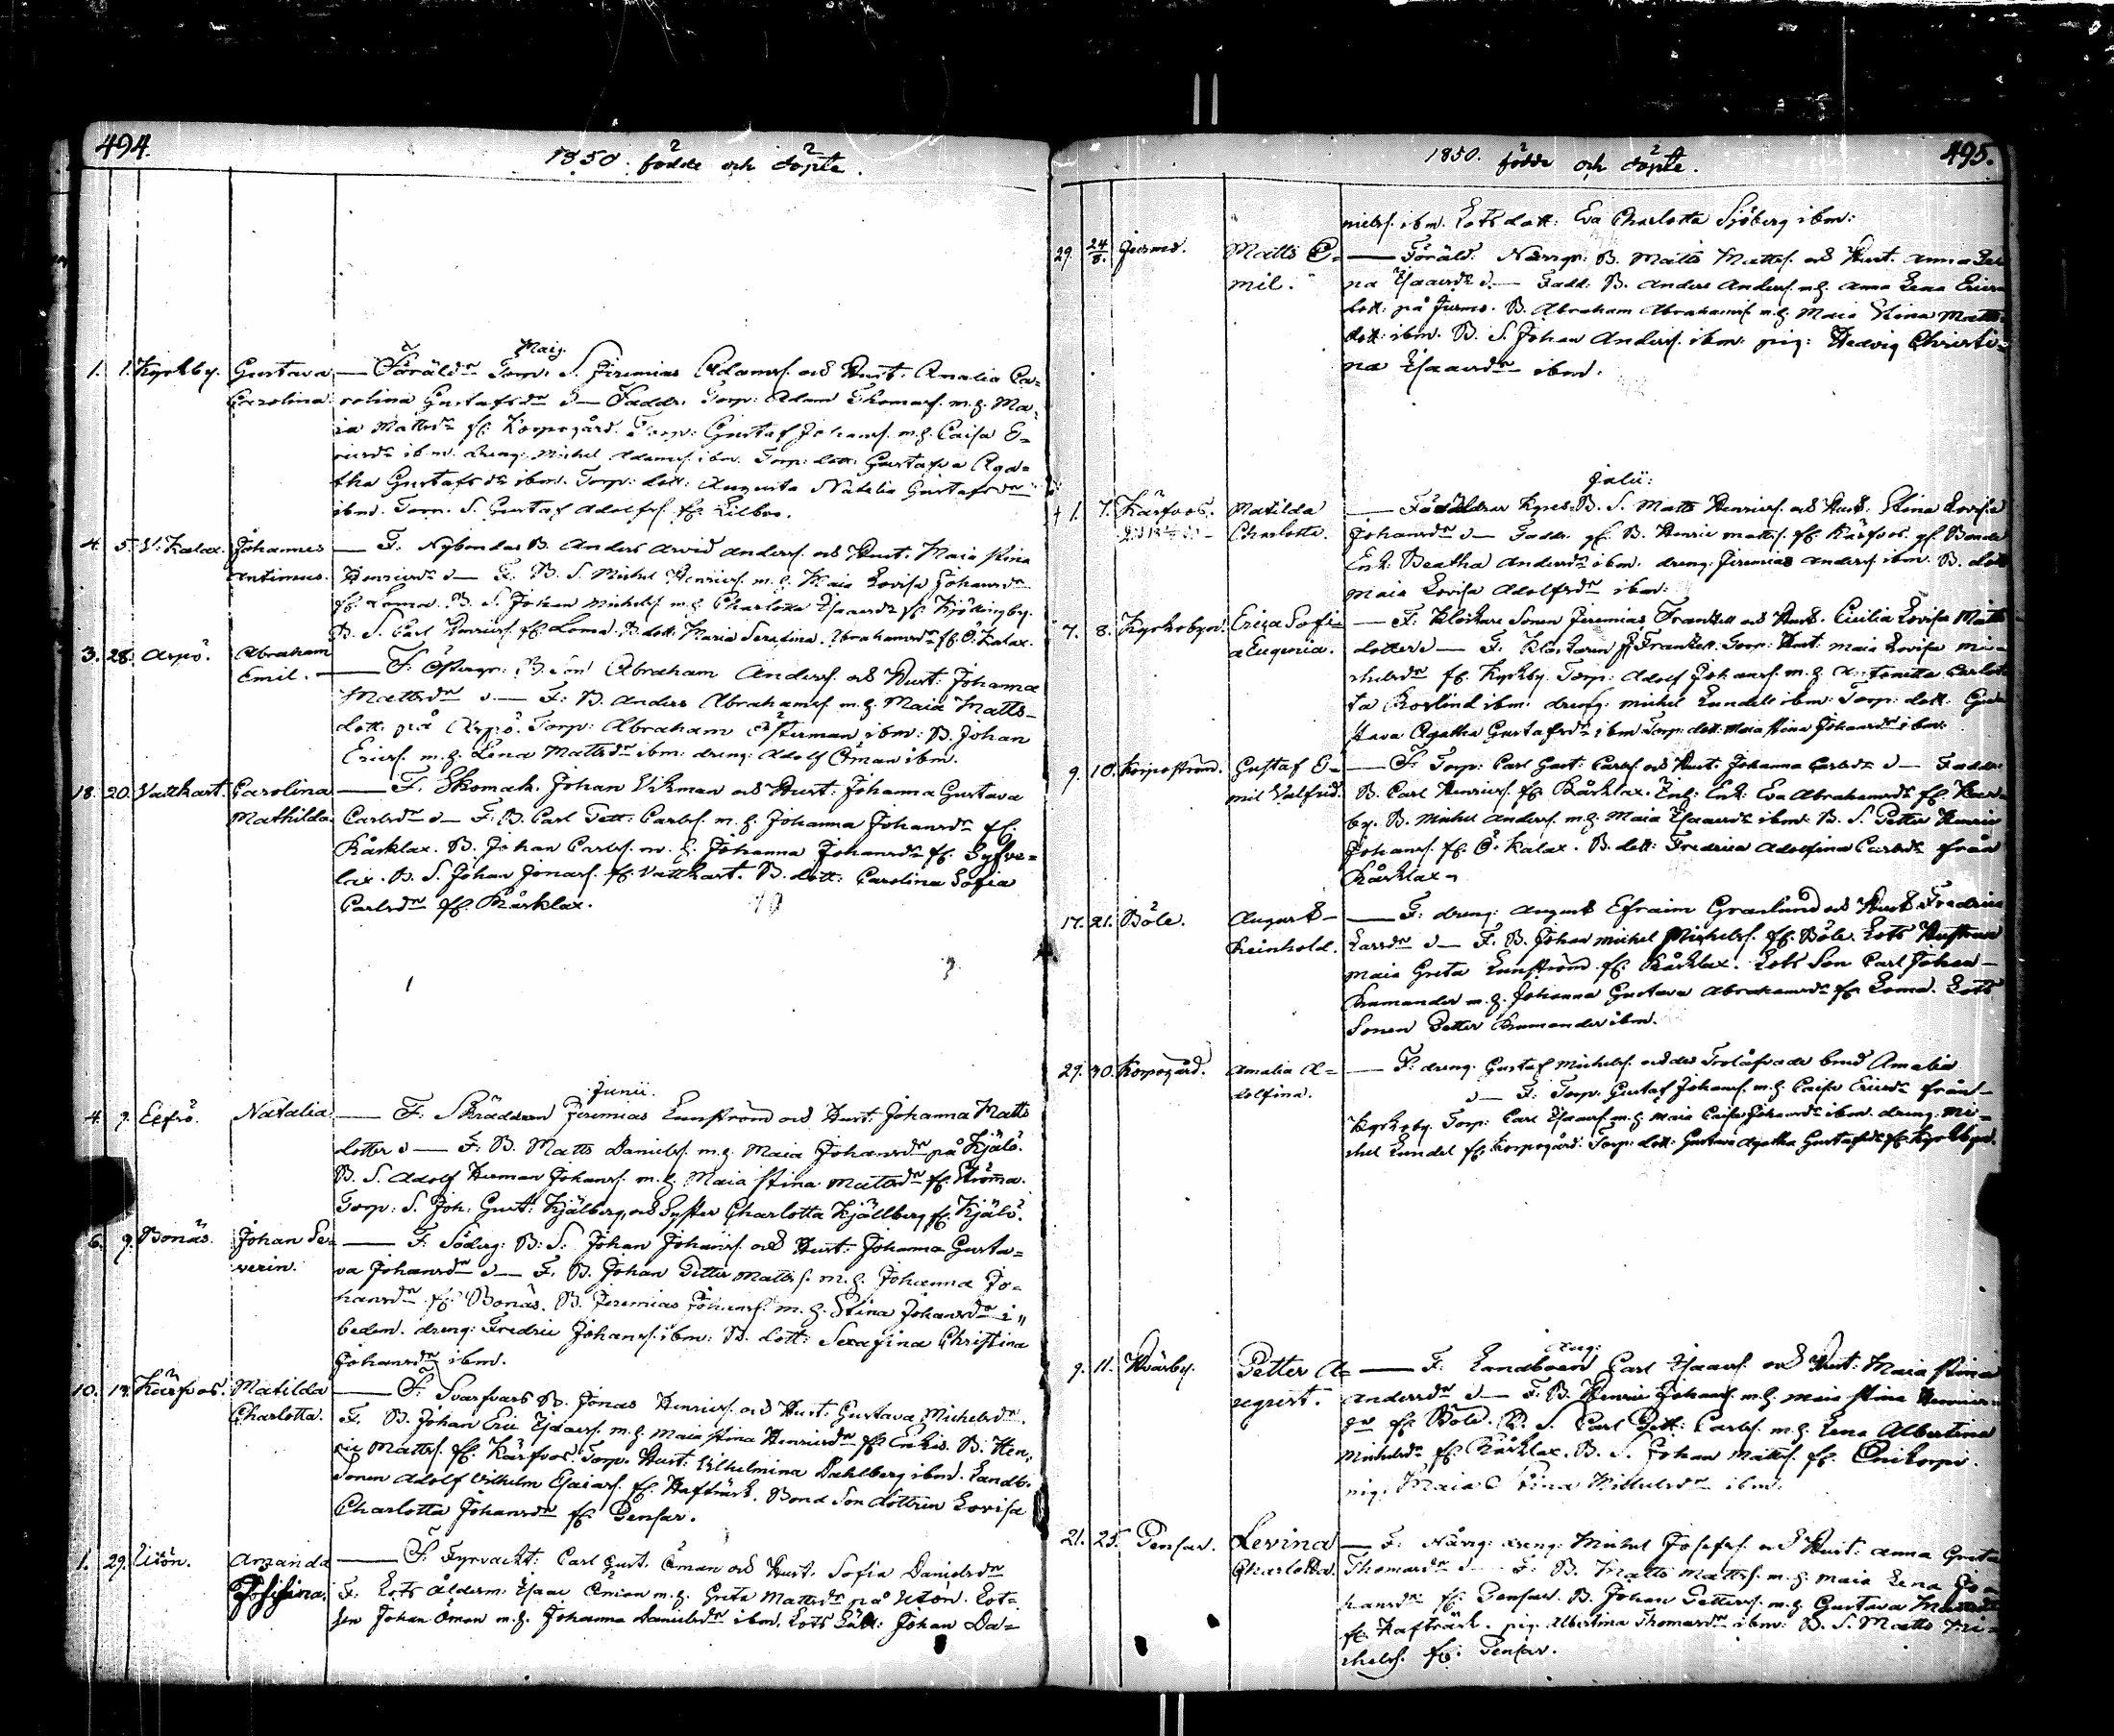 494.
1850. födde och döpte.
Maij.
1. 1. Kyrkby. Gustava — Föräldr Torp: S. Jeremias Adamss. och Hust. Amalia Ca=
Carolina. rolina Gustafsdr d— Faddr. Torp: Adam Thomass. m. h. Ma=
ia Mattsdr fr. Korpogård. Torp: Gustaf Johanss. m. h. Caisa E=
ricsdr ibm. dreng: Michel Adamss. ibm. Torp: dott: Gustafva Aga=
tha Gustafsdr ibm. Torp: dott: Augusta Natalia Gustafsdr
ibm. Torp. S. Gustaf Adolfss. fr. Lilbo.
4. 5. V: Kalax. Johannes — F: Nybondas B. Anders Arvid Anderss. och Hust: Maia Stina
Antimus. Henricsdr d— F: B. S. Michel Henricss. m. h. Maia Lovisa Johansdr
fr. Loma. B. S. Johan Michelss. m. h. Charlotta Isaacsdr fr. Kjödingby.
B. S. Carl Henricss. fr. Loma. B. dott: Maria Serafina Abrahamsdr fr. Ö. Kalax.
3. 28. Aspö. Abraham
Emil. — F: Östergr: B. Son Abraham Anderss. och Hust: Johanna
Mattsdr d— F: B. Anders Abrahamss. m. h. Maia Matts-
dott. på Aspö. Torp: Abraham Österman ibm: B. Johan
Ericss. m. h. Lena Mattsdr ibm: dreng: Adolf Öman ibm.
18. 20. Vattkast. Carolina — F. Skomak. Johan Vikman och Hust: Johanna Gustava
Mathilda. Carlsdr d— F: B. Carl Pett: Carlss. m. h. Johanna Johansdr fr.
Råsklax. B. Johan Carlss. m. h. Johanna Johansdr fr. Gyfve=
lax. B. S. Johan Jonass. fr. Vattkast. B. dott: Carolina Sofia
Carlsdr fr. Råsklax.
Junii.
4. 9. Elfsö. Natalia — F: Skräddaren Jeremias Lunström och Hust: Johanna Matts
dotter d— F: B. Matts Danielss. m. h. Maia Johansdr på Kjälö.
B. S. Adolf Herman Johanss. m. h. Maia Stina Mattsdr fr. Strömma.
Torp: S. Joh: Gust: Kjälberg, och Syster Charlotta Kjällberg fr. Kjälö.
6. 9. Bonäs. Johan Se= — F: Söderg: B: S: Johan Johanss. och Hust: Johanna Gusta=
verin. va Johansdr d— F. B. Johan Petter Mattss. m. h. Johanna Jo=
hansdr fr. Bonäs. B. Jeremias Johanss. m. h. Stina Johansdr i"
bedem. dreng: Fredric Johanss. ibm: B. dott: Serafina Christina
Johansdr ibm.
10. Kärfvos. Matilda — F: Svarfvars B. Jonas Henricss. och Hust: Gustava Michelsdr.
Charlotta. F. B. Johan Eric Isaacss. m. h. Maia Stina Henricsdr fr. Enkis. B. Hen,
ric Mattss. fr. Kärfvos. Torp. Hust: Vilhelmina Dahlberg ibm. Landb.
Sonen Adolf Vilhelm Esaiass. fr. Hafträsk. Bond Son dottren Lovisa
Charlotta Johansdr fr. Pensar.
1. 29. Utön. Amanda — F. Fyrvackt: Carl Gust. Öman och Hust. Sofia Danielsdr
Josefina. F. Lots Ålderm: Isaac Öman m. h. Greta Mattsdr på Utön. Lot=
sen Johan Öman m. h. Johanna Danielsdr ibm. Lots Johan Da=
495.
1850. födde och döpte.
nielss. ibm. Lots dott: Eva Charlotta Sjöberg ibm:
29. 24/8. Jurmo. Matts E= — Föräld. Norrgr: B. Matts Mattss. och Hust. Anna Le
mil. na Isaacsdr d— Fadd. B. Anders Anderss. m. h. Anna Lena Erics
dott: på Jurmo. B. Abraham Abrahamss. m. h. Maia Stina Matts=
dott: ibm. B. S. Johan Anderss. ibm: pig: Hedvig Christi=
na Isaacsdr ibm.
Julii:
1. 7. Kärfvos. Matilda — Föräldrar B. S. Matts Henricss. och Hust: Stina Lovisa
Charlotta. Johansdr d— Faddr. gf. B. Henric Mattss. fr. Kärfvos. gf. Bonde
Enk: Beatha Andersdr ibm. dreng: Jeremias Anderss. ibm. B. dott
Maia Lovisa Adolfsdr ibm:
7. 8. Kyrkobyn. Erica Sofi= — F: Klockare Sonen Jeremias Frankell och Hust. Cicilia Lovisa Matts
a Eugenia. dotter d— F: Klockaren J. Frankell. Torp: Hust: Maia Lovisa Mi=
chelsdr fr. Kyrkby. Torp: Adolf Johanss. m. h. Antonetta Carlot
ta Roslind ibm: dreng: Michel Lundell ibm: Torp: dott: Gus
stava Agatha Gustafsdr ibm. Torp: dott: Maia Stina Johansdr ibm:
9. 10. Korpoström. Gustaf E= — F: Torp: Carl Gust: Carlss. och Hust: Johanna Carlsdr d— Faddr
mil Valfrid. B. Carl Henricss. fr. Råsklax. Enk: Eva Abrahamsdr fr.
by. B. Michel Anderss. m. h. Maia Isaacsdr ibm: B. S. Petter Henric
Johanss. fr. Ö. Kalax. B. dott: Fredrica Adolfina Carlsdr från
Råsklax.
17. 21. Böle. August — F: dreng: August Efraim Granlund och Hust: Fredrica
Reinhold. Larsdr d— F. B. Johan Michel Michelss. fr. Böle. Lots Hustrun
Maia Greta Lunström fr. Råsklax. Lots Son Carl Johan
m. h. Johanna Gustava Abrahamsdr fr. Loma. Lots
Sonen Petter ibm.
29. 30. Korpogård. Amalia A= — F: dreng Gustaf Michelss. och des Trolåfvade brud Amalia
dolfina. d— F: Torp: Gustaf Johanss. m. h. Caisa Ericsdr från
Kyrkoby. Torp: Carl Isaacss. m. h. Maia Caisa Johansdr ibm. dreng: Mi=
chel Lundel fr. Korpogård: Torp: dott: Gustava Agatha Gustafsdr fr. Kyrkbyn.
Aug:
9. 11. Petter A= — F: Landboen Carl Isaacss. och Hust: Maia Stina
ugust. Andersdr d— F. B. Henric Johanss. m. h. Maia Stina Henrics
dr fr. Böle. B. S. Carl Pett: Carlss. m. h. Lena Albertina
Michelsdr fr. Råsklax. B. S. Johan Mattss. fr.
pig. Maia Stina Michelsdr ibm.
21. 25. Pensar. Levina — F: dreng: Michel Josefss. och Hust: Anna Greta
Charlotta. Thomasdr d— F: B. Matts Mattss. m. h. Maia Lena Jo=
hansdr fr. Pensar. B. Johan Petterss. m. h. Gustava
fr. Hafträsk. pig. Albertina Thomasdr ibm: B. S. Matts Mi=
chelss. fr. Pensar.